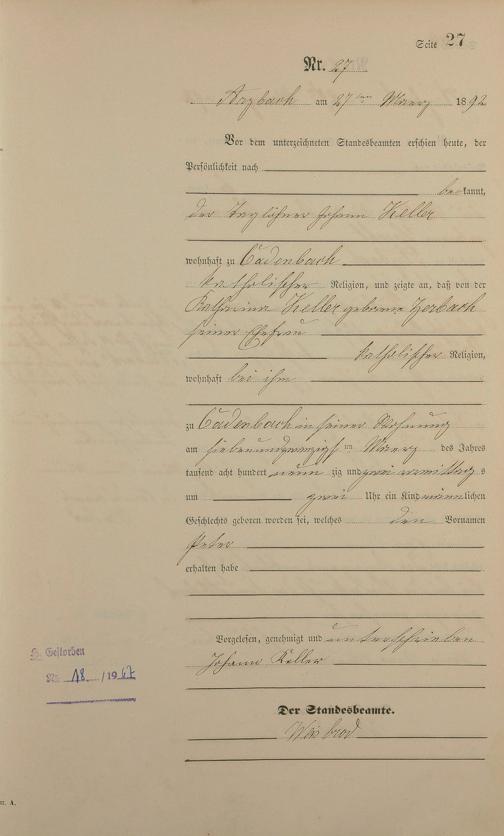 Seite 27
Nr. 27
Arzbach am 27ten Maerz 1892
Vor dem unterzeichneten Standesbeamten erschien heute, der
Persönlichkeit nach
bekannt,
der Taglöhner Johann Keller
wohnhaft zu Cadenbach
katholischer Religion, und zeigte an, daß von der
Katharina Keller geborene Zerbach
seiner Ehefrau
katholischer Religion,
wohnhaft bei ihm
zu Cadenbach in seiner Wohnung
am siebenundzwanzigsten Maerz des Jahres
tausend acht hundert neunzig und zwei vormittags
um zwei Uhr ein Kind männlichen
Geschlechts geboren worden sei, welches den Vornamen
Peter
erhalten habe
Vorgelesen, genehmigt und unterschrieben
Johann Keller
H. Gestorben
Nr. 18 / 1967
Der Standesbeamte.
Weisbrod
A.